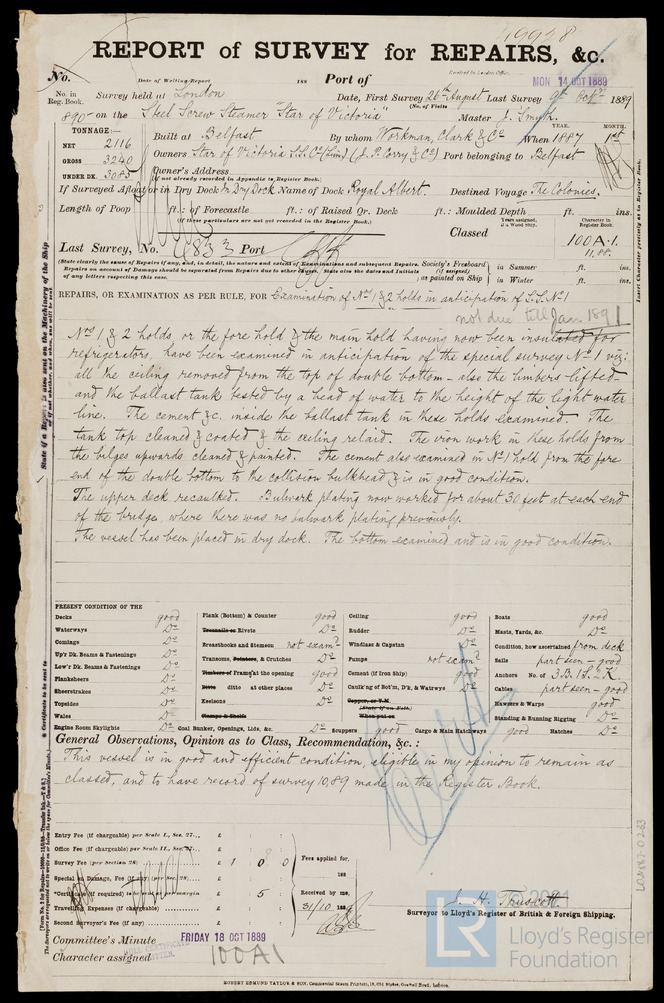 49928
REPORT of SURVEY for REPAIRS, &c.
No. Date of Writing Report 188 Port of Received in London Office,
MON 14 OCT 1889
No. in Reg. Book. Survey held at London Date, First Survey 26th August Last Survey 9th Octr 1889
(No. of Visits
890 on the Steel Screw Steamer "Star of Victoria" Master J. Smyth
TONNAGE:—
NET 2116
GROSS 3240
UNDER DK. 3085
Built at Belfast By whom Workman, Clark & Co When 1887 YEAR. MONTH. 1st
Owners Star of Victoria S.S. Co (Lim) (J. P. Corry & Co) Port belonging to Belfast
Owner's Address
(If not already recorded in Appendix to Register Book.)
If Surveyed Afloat or in Dry Dock Dry Dock Name of Dock Royal Albert. Destined Voyage The Colonies.
Length of Poop ft.: of Forecastle ft.: of Raised Qr. Deck ft.: Moulded Depth ft. ins.
(If these particulars are not yet recorded in the Register Book.)
Classed Years assigned, if a Wood ship. Character in Register Book.
100A.1.
11,88.
Last Survey, No. Port
(State clearly the cause of Repairs if any, and, in detail, the nature and extent of Examinations and subsequent Repairs.
Repairs on account of Damage should be separated from Repairs due to other causes. State also the dates and Initials of any letters respecting this case.
Society's Freeboard (if assigned) as painted on Ship in Summer ft. ins.
in Winter ft. ins.
REPAIRS, OR EXAMINATION AS PER RULE, FOR Examination of Nos 1 & 2 holds in anticipation of S.S. No 1
not due till Jan 1891
Nos 1 & 2 holds or the fore hold & the main hold having now been insulated for
refrigerators, have been examined in anticipation of the special survey No 1 viz:
all the ceiling removed from the top of double bottom – also the limbers lifted –
and the ballast tank tested by a head of water to the height of the light water
line. The cement &c. inside the ballast tank in these holds examined. The
tank top cleaned & coated & the ceiling relaid. The iron work in these holds from
the bilges upwards cleaned & painted. The cement also examined in No 1 hold from the fore
end of the double bottom to the collision bulkhead & is in good condition.
The upper deck recaulked. Bulwark plating now worked for about 30 feet at each end
of the bridge, where there was no bulwark plating previously.
The vessel has been placed in dry dock. The bottom examined and is in good condition.
PRESENT CONDITION OF THE
Decks good
Waterways Do
Comings Do
Up'r Dk. Beams & Fastenings Do
Low'r Dk. Beams & Fastenings Do
Planksheers Do
Sheerstrakes Do
Topsides Do
Wales Do
Engine Room Skylights Do
Plank (Bottom) & Counter good
Treenails or Rivets Do
Breasthooks and Stemson not examd
Transoms, Pointers, & Crutches Do
Timbers or Frames at the opening good
Ditto ditto at other places Do
Keelsons Do
Clamps & Shelfs
Coal Bunker, Openings, Lids, &c. Do
Ceiling good
Rudder Do
Windlass & Capstan Do
Pumps not examd
Cement (if Iron Ship) good
Caulk'ng of Bot'm, D'k, & Watrways Do
Copper, or Y.M.
(State if on Felt)
When put on
Scuppers good
Cargo & Main Hatchways good
Boats good
Masts, Yards, &c. Do
Condition, how ascertained from deck
Sails part seen – good
Anchors No. of 3 B. 1 S. 2 K.
Cables part seen – good
Hawsers & Warps good
Standing & Running Rigging Do
Hatches Do
General Observations, Opinion as to Class, Recommendation, &c. :
This vessel is in good and efficient condition, eligible in my opinion to remain as
classed, and to have record of survey 10,89 made in the Register Book.
Entry Fee (if chargeable) per Scale I., Sec. 27... £ : :
Office Fee (if chargeable) per Scale II., Sec. 27... £ : :
Survey Fee (per Section 28) £ 1 0 0
Special or Damage Fee (if any) (per Sec. 28) £ : :
*Certificate (if required) to be sent as per margin £ 5
Travelling Expenses (if chargeable) £ : :
Second Surveyor's Fee (if any) £ : :
Fees applied for,
188
Received by me,
31/10 188
J. H. Truscott
Surveyor to Lloyd's Register of British & Foreign Shipping.
Committee's Minute FRIDAY 18 OCT 1889
Character assigned 100A1
ROBERT EDMUND TAYLOR & SON, Commercial Steam Printers, 19, Old Street, Goswell Road, London.
State if a Report is also sent on the Machinery of the Ship
Insert Character precisely as in Register Book
* Certificate to be sent to
LR
Lloyd's Register
Foundation